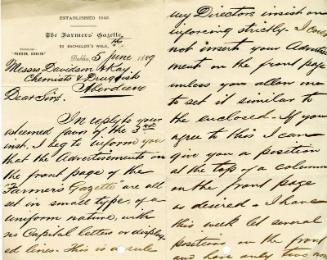 ESTABLISHED 1842.
The Farmers' Gazette,
23 BACHELOR'S WALK,
Dublin, 5 June 1889
Messrs Davidson & Kay
Chemists & Druggists
Aberdeen
Dear Sirs,
In reply to your
esteemed favor of the 3rd
inst. I beg to inform you
that the Advertisements on
the front page of the
Farmers Gazette are all
set in small type, of a
uniform nature, with
no Capital letters or display-
ed lines. This is a rule
my Directors insist on
enforcing strictly. I could
not insert your Advertise-
ment on the front page
unless you allow me
to set it similar to
the enclosed. If you
agree to this I can
give you a position
at the top of a column
on the front page
as desired. I have
this week let several
positions on the front
and have only two now